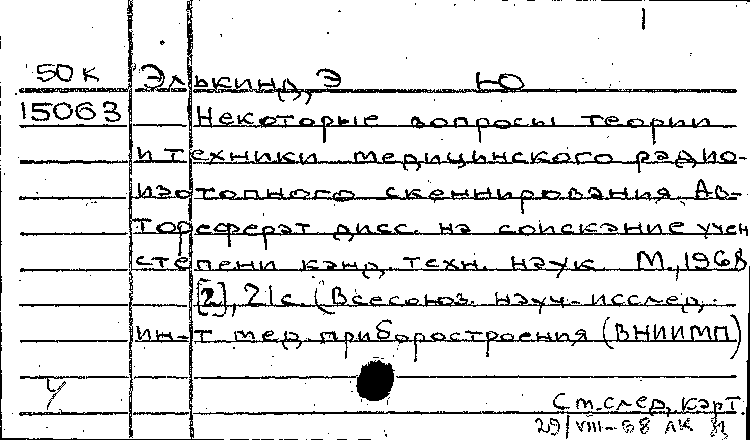 1
50к Элькинд, Э Ю
15063 Некоторые вопросы теории
и техники медицинского радио-
изотопного сканнирования. Ав-
тореферат дисс. на соискание учен
степени канд. техн. наук М., 1968
[2], 21с. (Всесоюз. науч-исслед.
ин-т мед. приборостроения (ВНИИМП)
У
См. след. карт.
29/VIII-68 ЛК